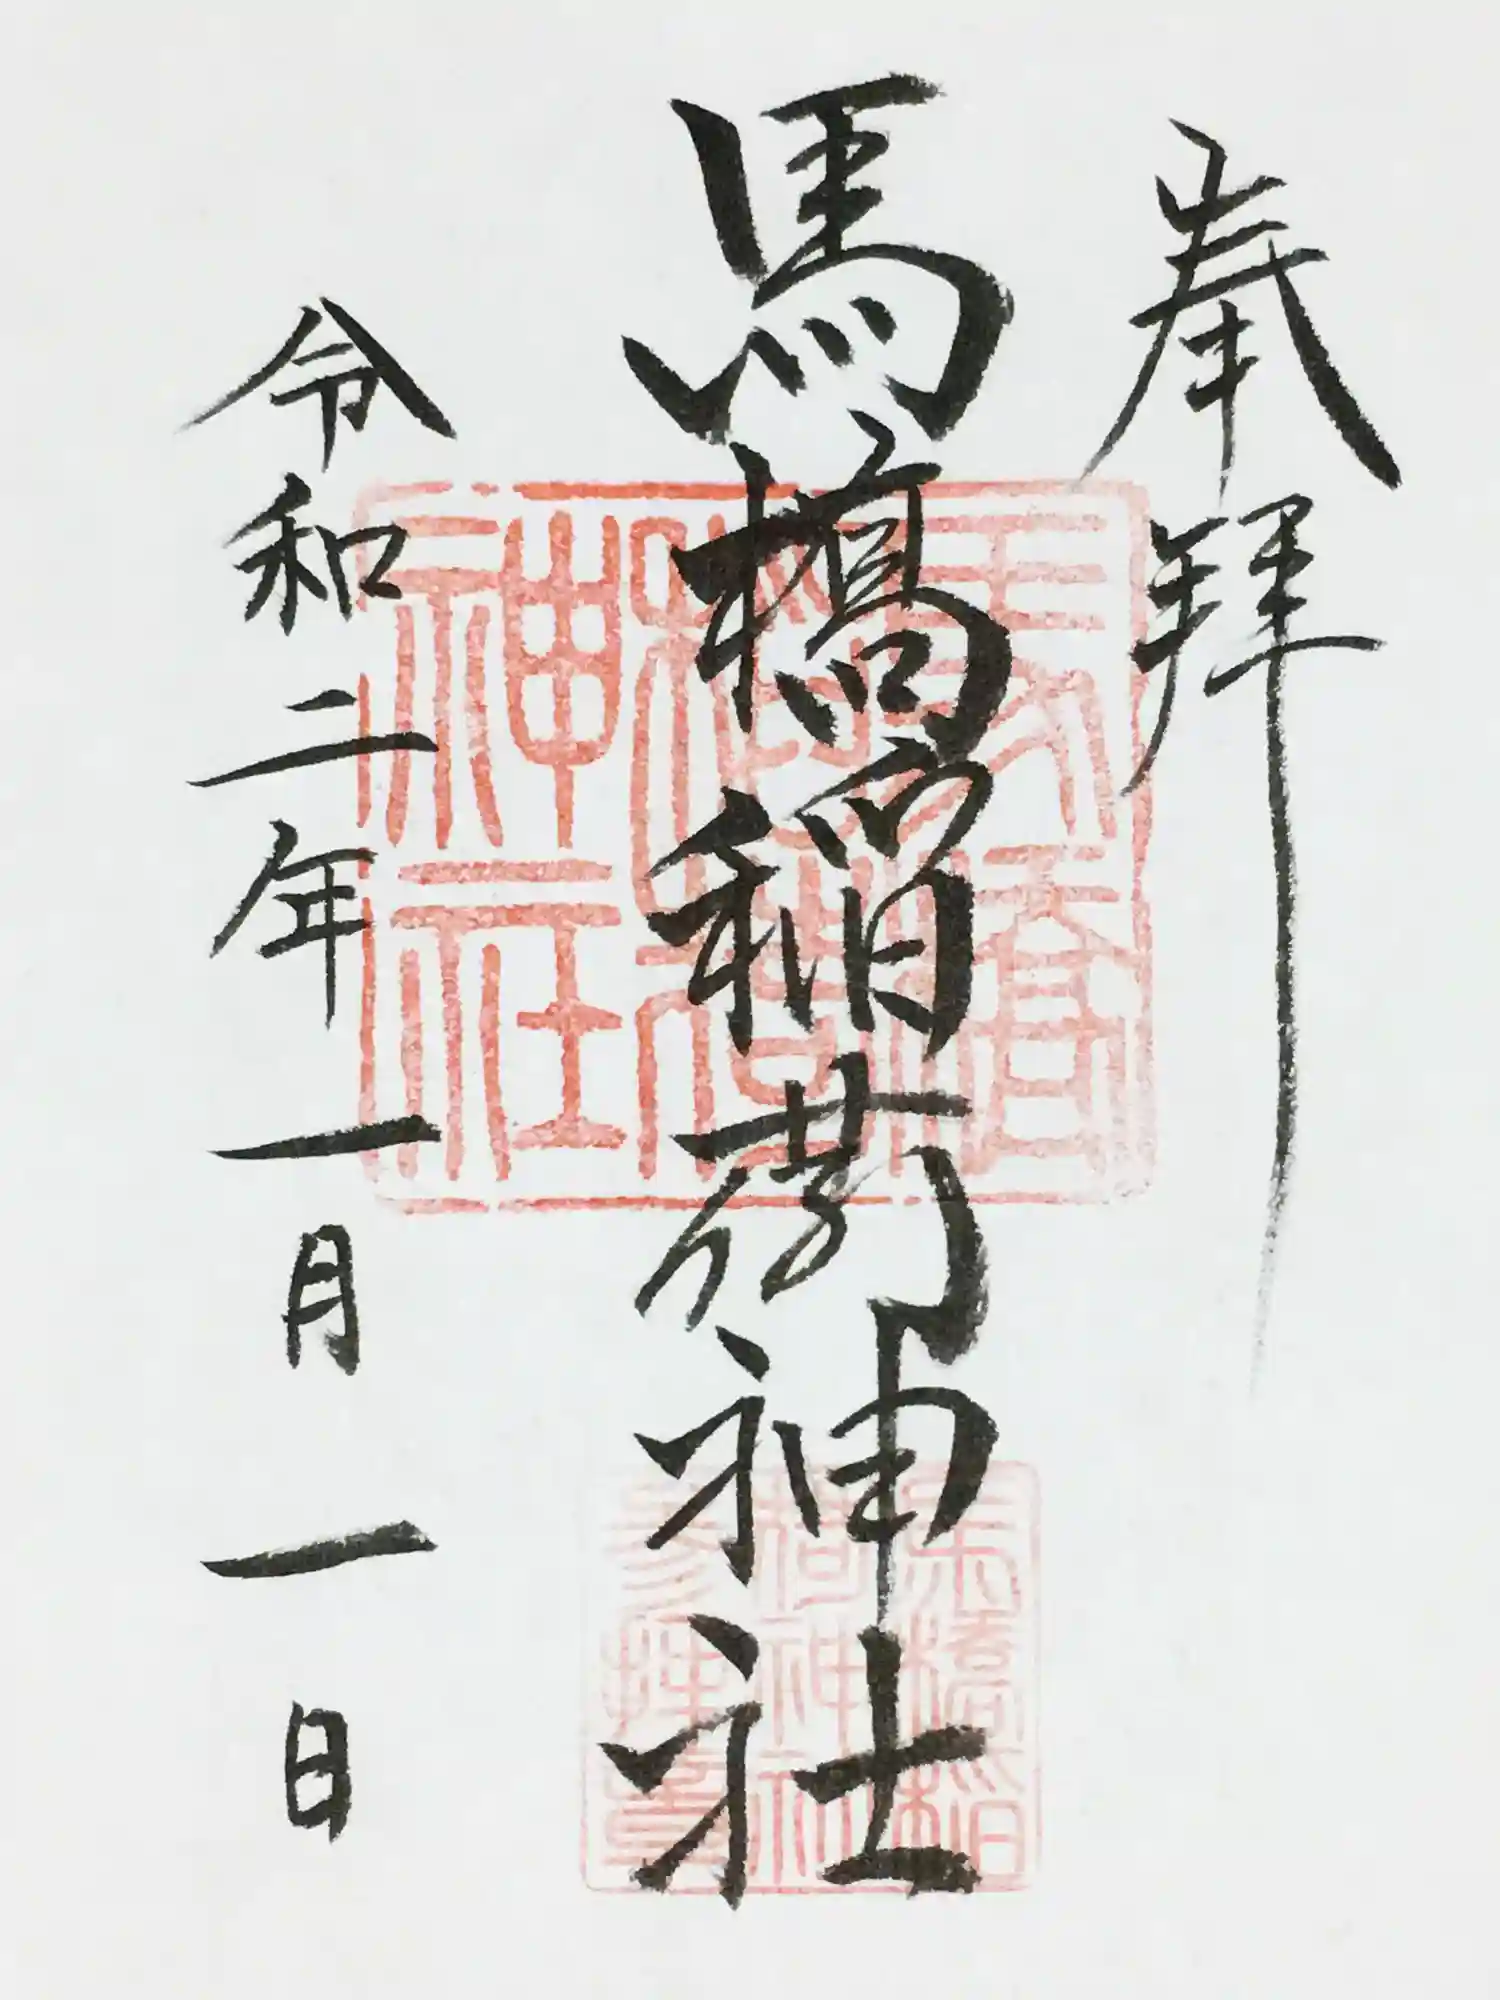 奉拝
馬橋稲荷神社
令和二年一月一日
馬橋
稲荷
神社
馬橋稲
荷神社
参拝章